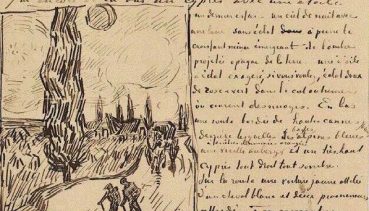 J'ai encore de là bas un cyprès avec une étoile
un dernier essai – un ciel de nuit avec
une lune sans éclat à peine le
croissant mince émergeant de l'ombre
projetée opaque de la terre – une étoile
à éclat exagéré, si vous voulez, éclat doux
de rose & vert dans le ciel outremer
où courent des nuages. En bas
une route bordée de hautes cannes
derrière lesquelles les alpines bleues
à fenêtres illuminées orangé
une vieille auberge et un très haut
cyprès tout droit tout sombre.
Sur la route une voiture jaune attelée
d'un cheval blanc et deux promeneurs